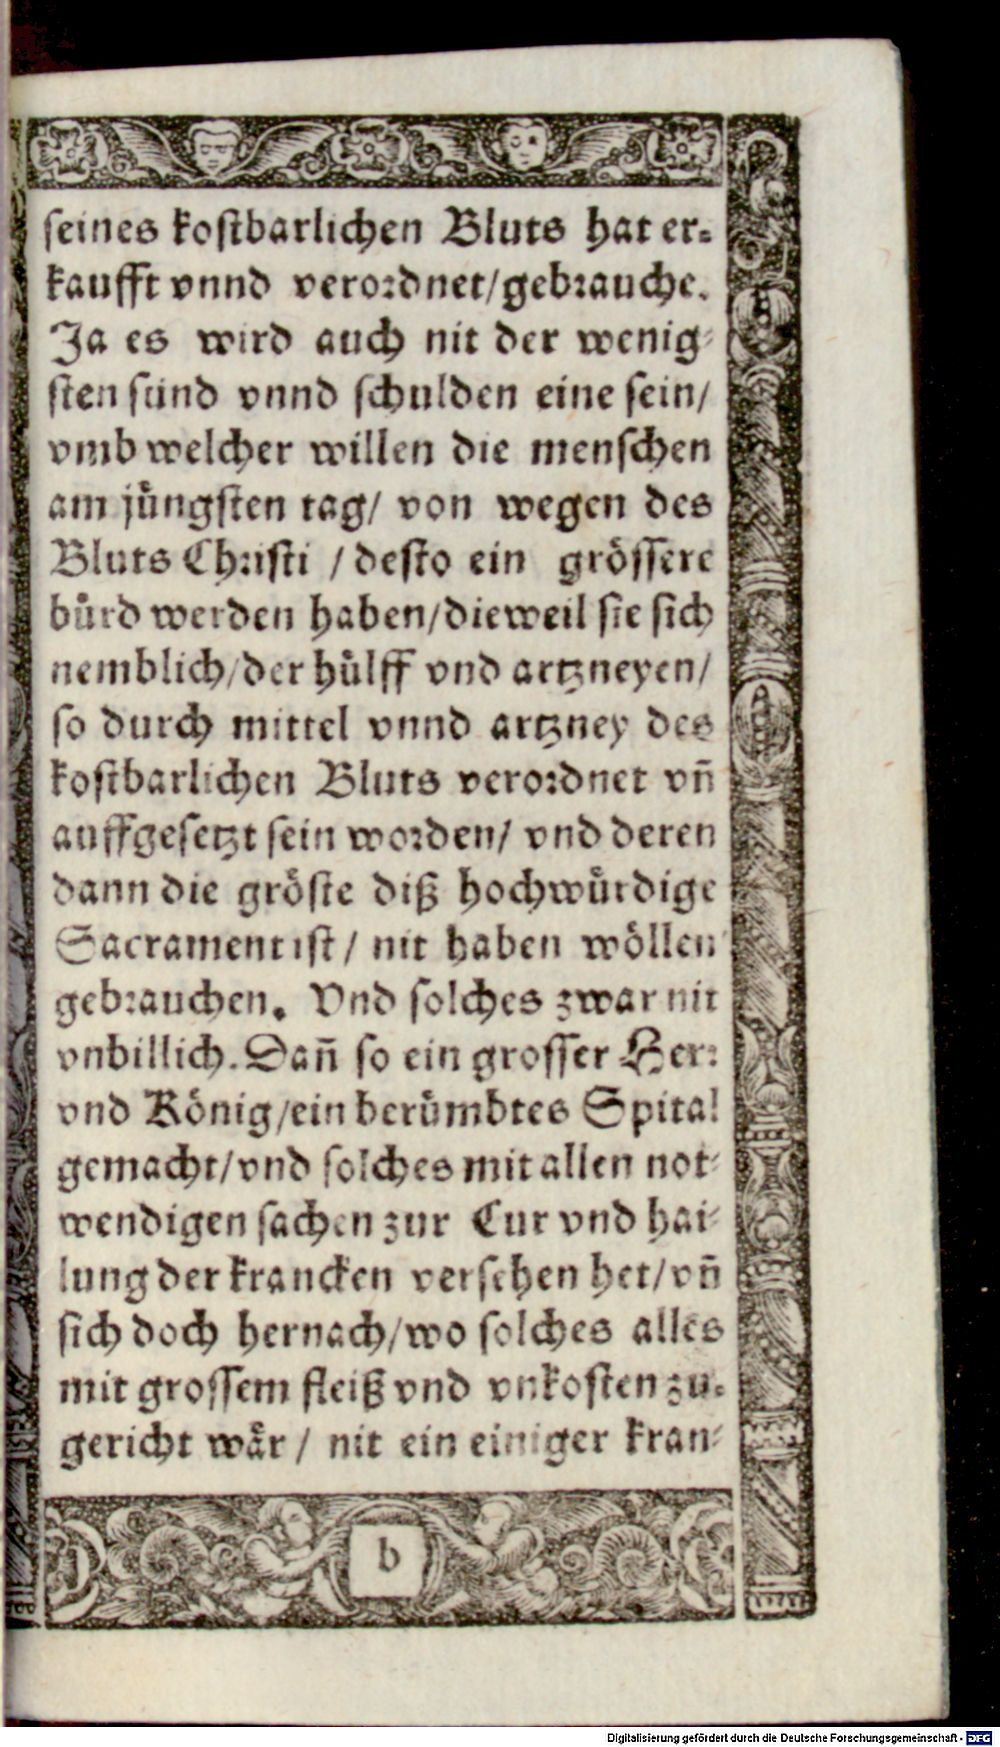 seines kostbarlichen Bluts hat er⸗
kaufft vnnd verordnet/gebrauche.
Ja es wird auch nit der wenig⸗
sten sünd vnnd schulden eine sein/
vmb welcher willen die menschen
am jüngsten tag/ von wegen des
Bluts Christi / desto ein grössere
bürd werden haben/dieweil sie sich
nemblich/der hülff vnd artzneyen/
so durch mittel vnnd artzney des
kostbarlichen Bluts verordnet vñ
auffgesetzt sein worden/ vnd deren
dann die gröste diß hochwürdige
Sacrament ist / nit haben wöllen
gebrauchen. Vnd solches zwar nit
vnbillich. Dañ so ein grosser Herr
vnd König/ein berümbtes Spital
gemacht/vnd solches mit allen not⸗
wendigen sachen zur Cur vnd hai⸗
lung der krancken versehen het/vñ
sich doch hernach/wo solches alles
mit grossem fleiß vnd vnkosten zu⸗
gericht wär / nit ein einiger kran⸗
b
Digitalisierung gefördert durch die Deutsche Forschungsgemeinschaft - DFG